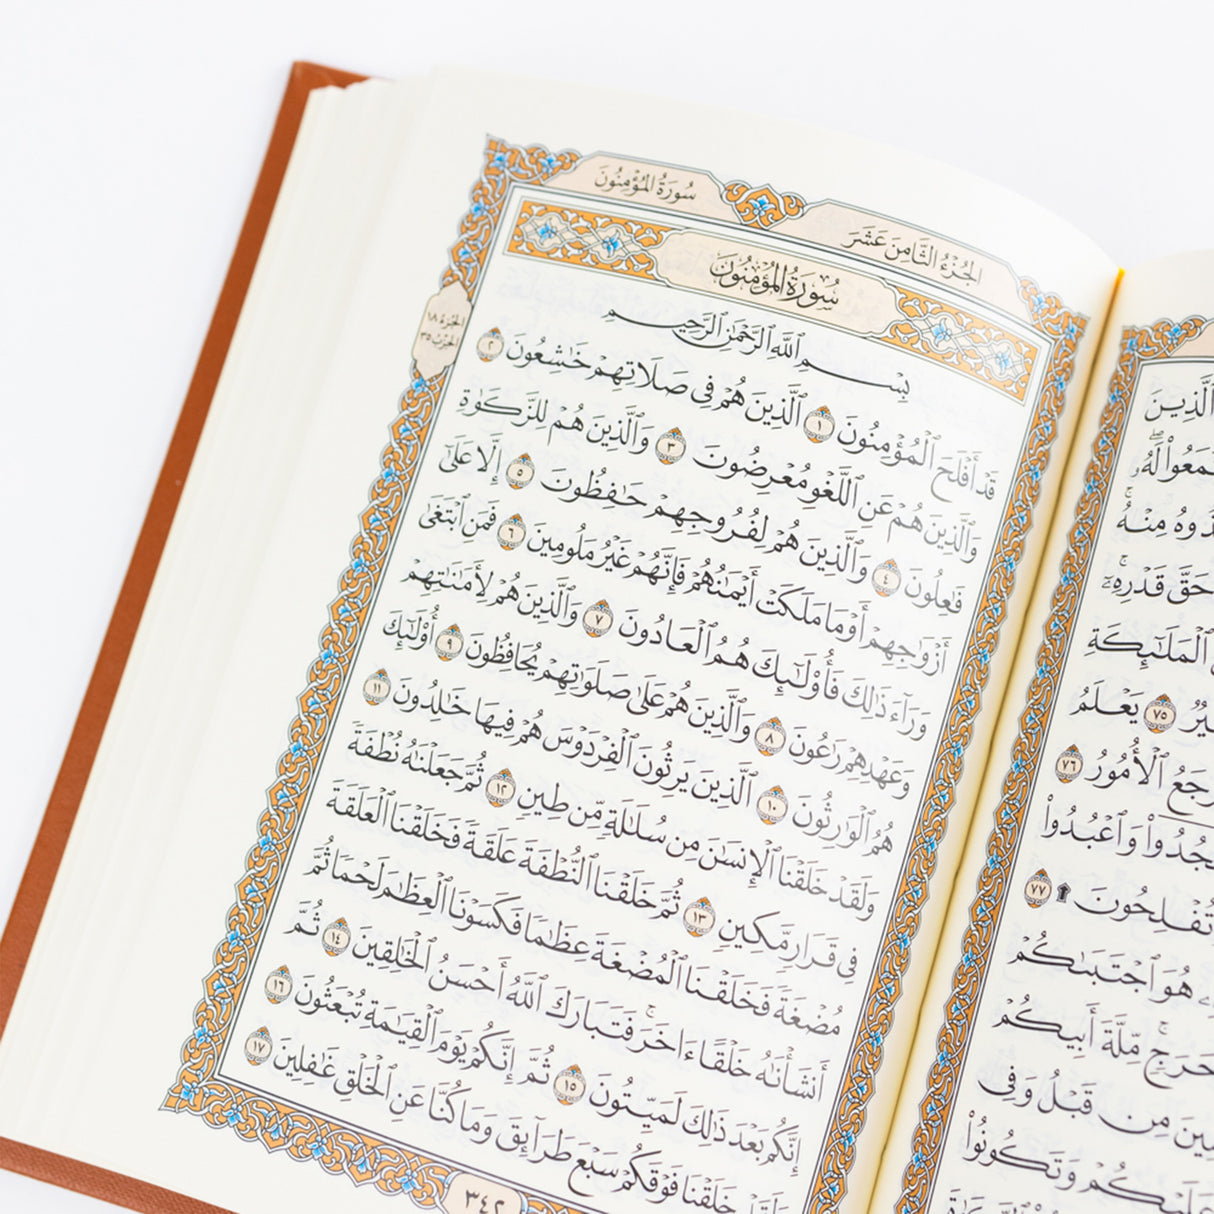 الجُزْءُ الثَّامِنَ عَشَرَ
سُورَةُ المُؤْمِنُونَ
سُورَةُ المُؤْمِنُونَ
الجزء ١٨
الحزب ٣٥
بِسْمِ ٱللَّهِ ٱلرَّحْمَٰنِ ٱلرَّحِيمِ
قَدْ أَفْلَحَ ٱلْمُؤْمِنُونَ ١ ٱلَّذِينَ هُمْ فِى صَلَاتِهِمْ خَٰشِعُونَ ٢
وَٱلَّذِينَ هُمْ عَنِ ٱللَّغْوِ مُعْرِضُونَ ٣ وَٱلَّذِينَ هُمْ لِلزَّكَوٰةِ
فَٰعِلُونَ ٤ وَٱلَّذِينَ هُمْ لِفُرُوجِهِمْ حَٰفِظُونَ ٥ إِلَّا عَلَىٰٓ
أَزْوَٰجِهِمْ أَوْ مَا مَلَكَتْ أَيْمَٰنُهُمْ فَإِنَّهُمْ غَيْرُ مَلُومِينَ ٦ فَمَنِ ٱبْتَغَىٰ
وَرَآءَ ذَٰلِكَ فَأُوْلَٰٓئِكَ هُمُ ٱلْعَادُونَ ٧ وَٱلَّذِينَ هُمْ لِأَمَٰنَٰتِهِمْ
وَعَهْدِهِمْ رَٰعُونَ ٨ وَٱلَّذِينَ هُمْ عَلَىٰ صَلَوَٰتِهِمْ يُحَافِظُونَ ٩ أُوْلَٰٓئِكَ
هُمُ ٱلْوَٰرِثُونَ ١٠ ٱلَّذِينَ يَرِثُونَ ٱلْفِرْدَوْسَ هُمْ فِيهَا خَٰلِدُونَ ١١
وَلَقَدْ خَلَقْنَا ٱلْإِنسَٰنَ مِن سُلَٰلَةٍ مِّن طِينٍ ١٢ ثُمَّ جَعَلْنَٰهُ نُطْفَةً
فِى قَرَارٍ مَّكِينٍ ١٣ ثُمَّ خَلَقْنَا ٱلنُّطْفَةَ عَلَقَةً فَخَلَقْنَا ٱلْعَلَقَةَ
مُضْغَةً فَخَلَقْنَا ٱلْمُضْغَةَ عِظَٰمًا فَكَسَوْنَا ٱلْعِظَٰمَ لَحْمًا ثُمَّ
أَنشَأْنَٰهُ خَلْقًا ءَاخَرَ ۚ فَتَبَارَكَ ٱللَّهُ أَحْسَنُ ٱلْخَٰلِقِينَ ١٤ ثُمَّ
إِنَّكُم بَعْدَ ذَٰلِكَ لَمَيِّتُونَ ١٥ ثُمَّ إِنَّكُمْ يَوْمَ ٱلْقِيَٰمَةِ تُبْعَثُونَ ١٦
وَلَقَدْ خَلَقْنَا فَوْقَكُمْ سَبْعَ طَرَآئِقَ وَمَا كُنَّا عَنِ ٱلْخَلْقِ غَٰفِلِينَ ١٧
٣٤٢
ٱلَّذِينَ
لَهُۥ
مِنْهُ ۚ
حَقَّ قَدْرِهِۦٓ ۚ
ٱلْمَلَٰٓئِكَةِ
٧٥ يَعْلَمُ
ٱلْأُمُورُ ٧٦
وَٱعْبُدُواْ
تُفْلِحُونَ ۩ ٧٧
هُوَ ٱجْتَبَىٰكُمْ
حَرَجٍ ۚ مِّلَّةَ أَبِيكُمْ
مِن قَبْلُ وَفِى
وَتَكُونُواْ